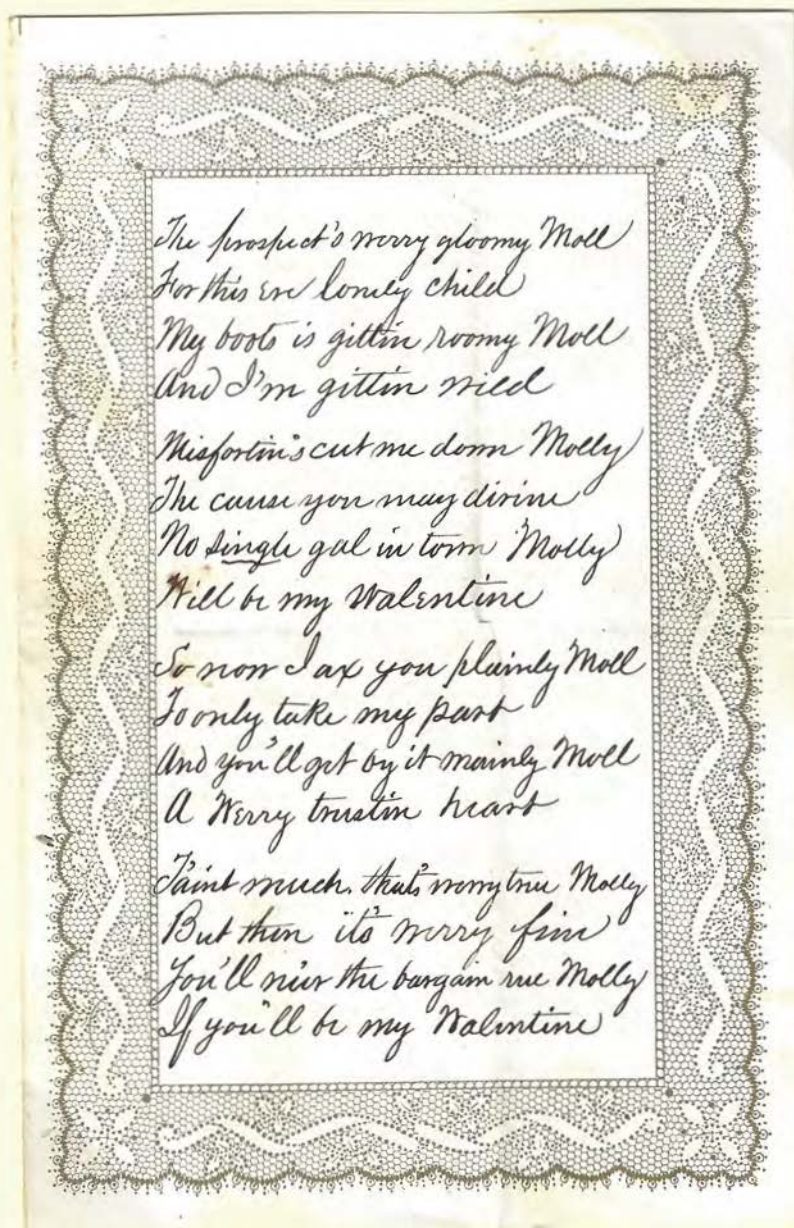 The prospect's werry gloomy Moll
For this ere lonely child
My boots is gittin roomy Moll
And I'm gittin wild
Misfortin's cut me down Molly
The cause you may divine
No single gal in town Molly
Will be my Walentine
So now I ax you plainly Moll
To only take my part
And you'll get by it mainly Moll
A Werry trustin heart
T'aint much. that's werry true Molly
But then it's werry fine
You'll ne'er the bargain rue Molly
If you'll be my Walentine